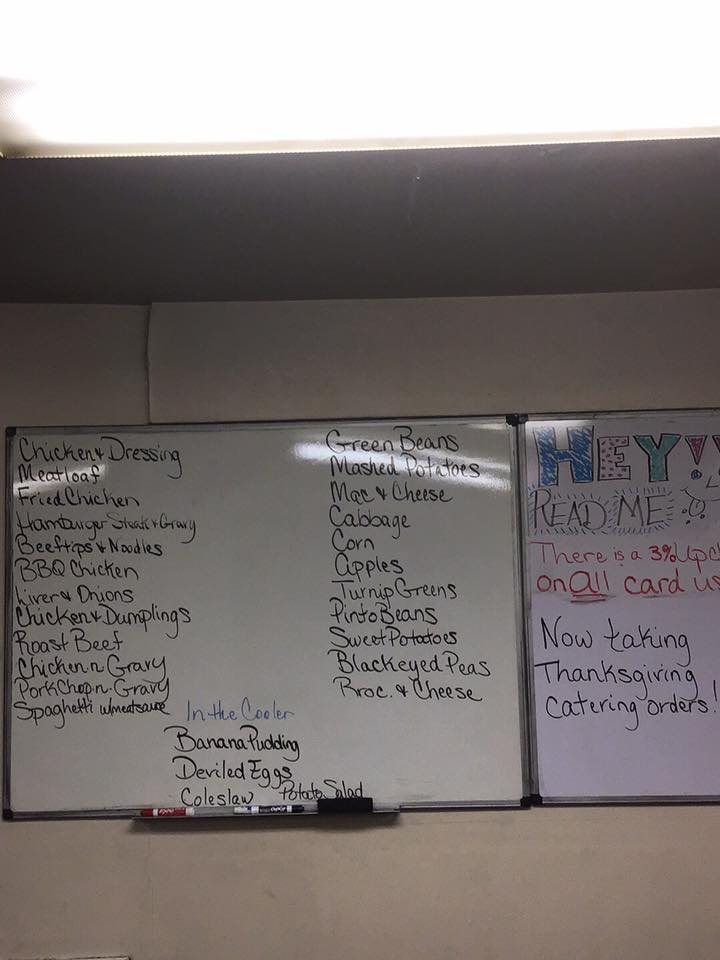 Chicken & Dressing
Meatloaf
Fried Chicken
Hamburger Steak & Gravy
Beeftips & Noodles
BBQ Chicken
Liver & Onions
Chicken & Dumplings
Roast Beef
Chicken n Gravy
PorkChop n Gravy
Spaghetti w/meatsauce
Green Beans
Mashed Potatoes
Mac & Cheese
Cabbage
Corn
Apples
Turnip Greens
Pinto Beans
Sweet Potatoes
Blackeyed Peas
Broc. & Cheese
In the Cooler
Banana Pudding
Deviled Eggs
Coleslaw Potato Salad
HEY!!
READ ME
There is a 3% Up
on all card us
Now taking
Thanksgiving
catering orders!
EXPO